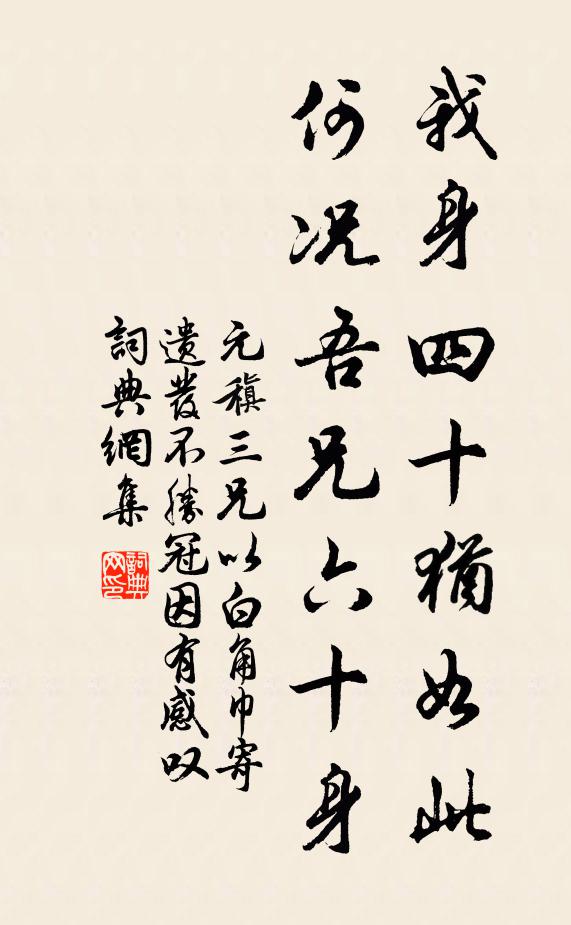 我身四十猶如此
何况吾兄六十身
元稹三兄以白角巾寄
遺發不勝冠因有感叹
詞典網集
詞典
网印